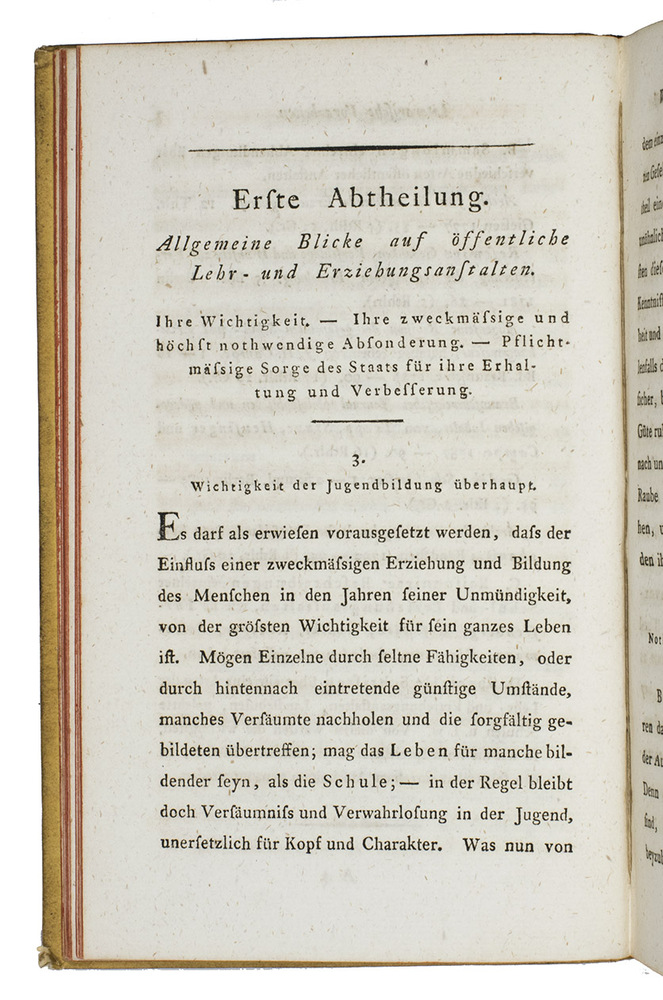 Erſte Abtheilung.
Allgemeine Blicke auf öffentliche
Lehr- und Erziehungsanſtalten.
Ihre Wichtigkeit. — Ihre zweckmäſsige und
höchſt nothwendige Abſonderung. — Pflicht-
mäſsige Sorge des Staats für ihre Erhal-
tung und Verbeſſerung.
3.
Wichtigkeit der Jugendbildung überhaupt.
Es darf als erwieſen vorausgeſetzt werden, daſs der
Einfluſs einer zweckmäſsigen Erziehung und Bildung
des Menſchen in den Jahren ſeiner Unmündigkeit,
von der gröſsten Wichtigkeit für ſein ganzes Leben
iſt. Mögen Einzelne durch ſeltne Fähigkeiten, oder
durch hintennach eintretende günſtige Umſtände,
manches Verſäumte nachholen und die ſorgfältig ge-
bildeten übertreffen; mag das Leben für manche bil-
dender ſeyn, als die Schule; — in der Regel bleibt
doch Verſäumniſs und Verwahrloſung in der Jugend,
unerſetzlich für Kopf und Charakter. Was nun von